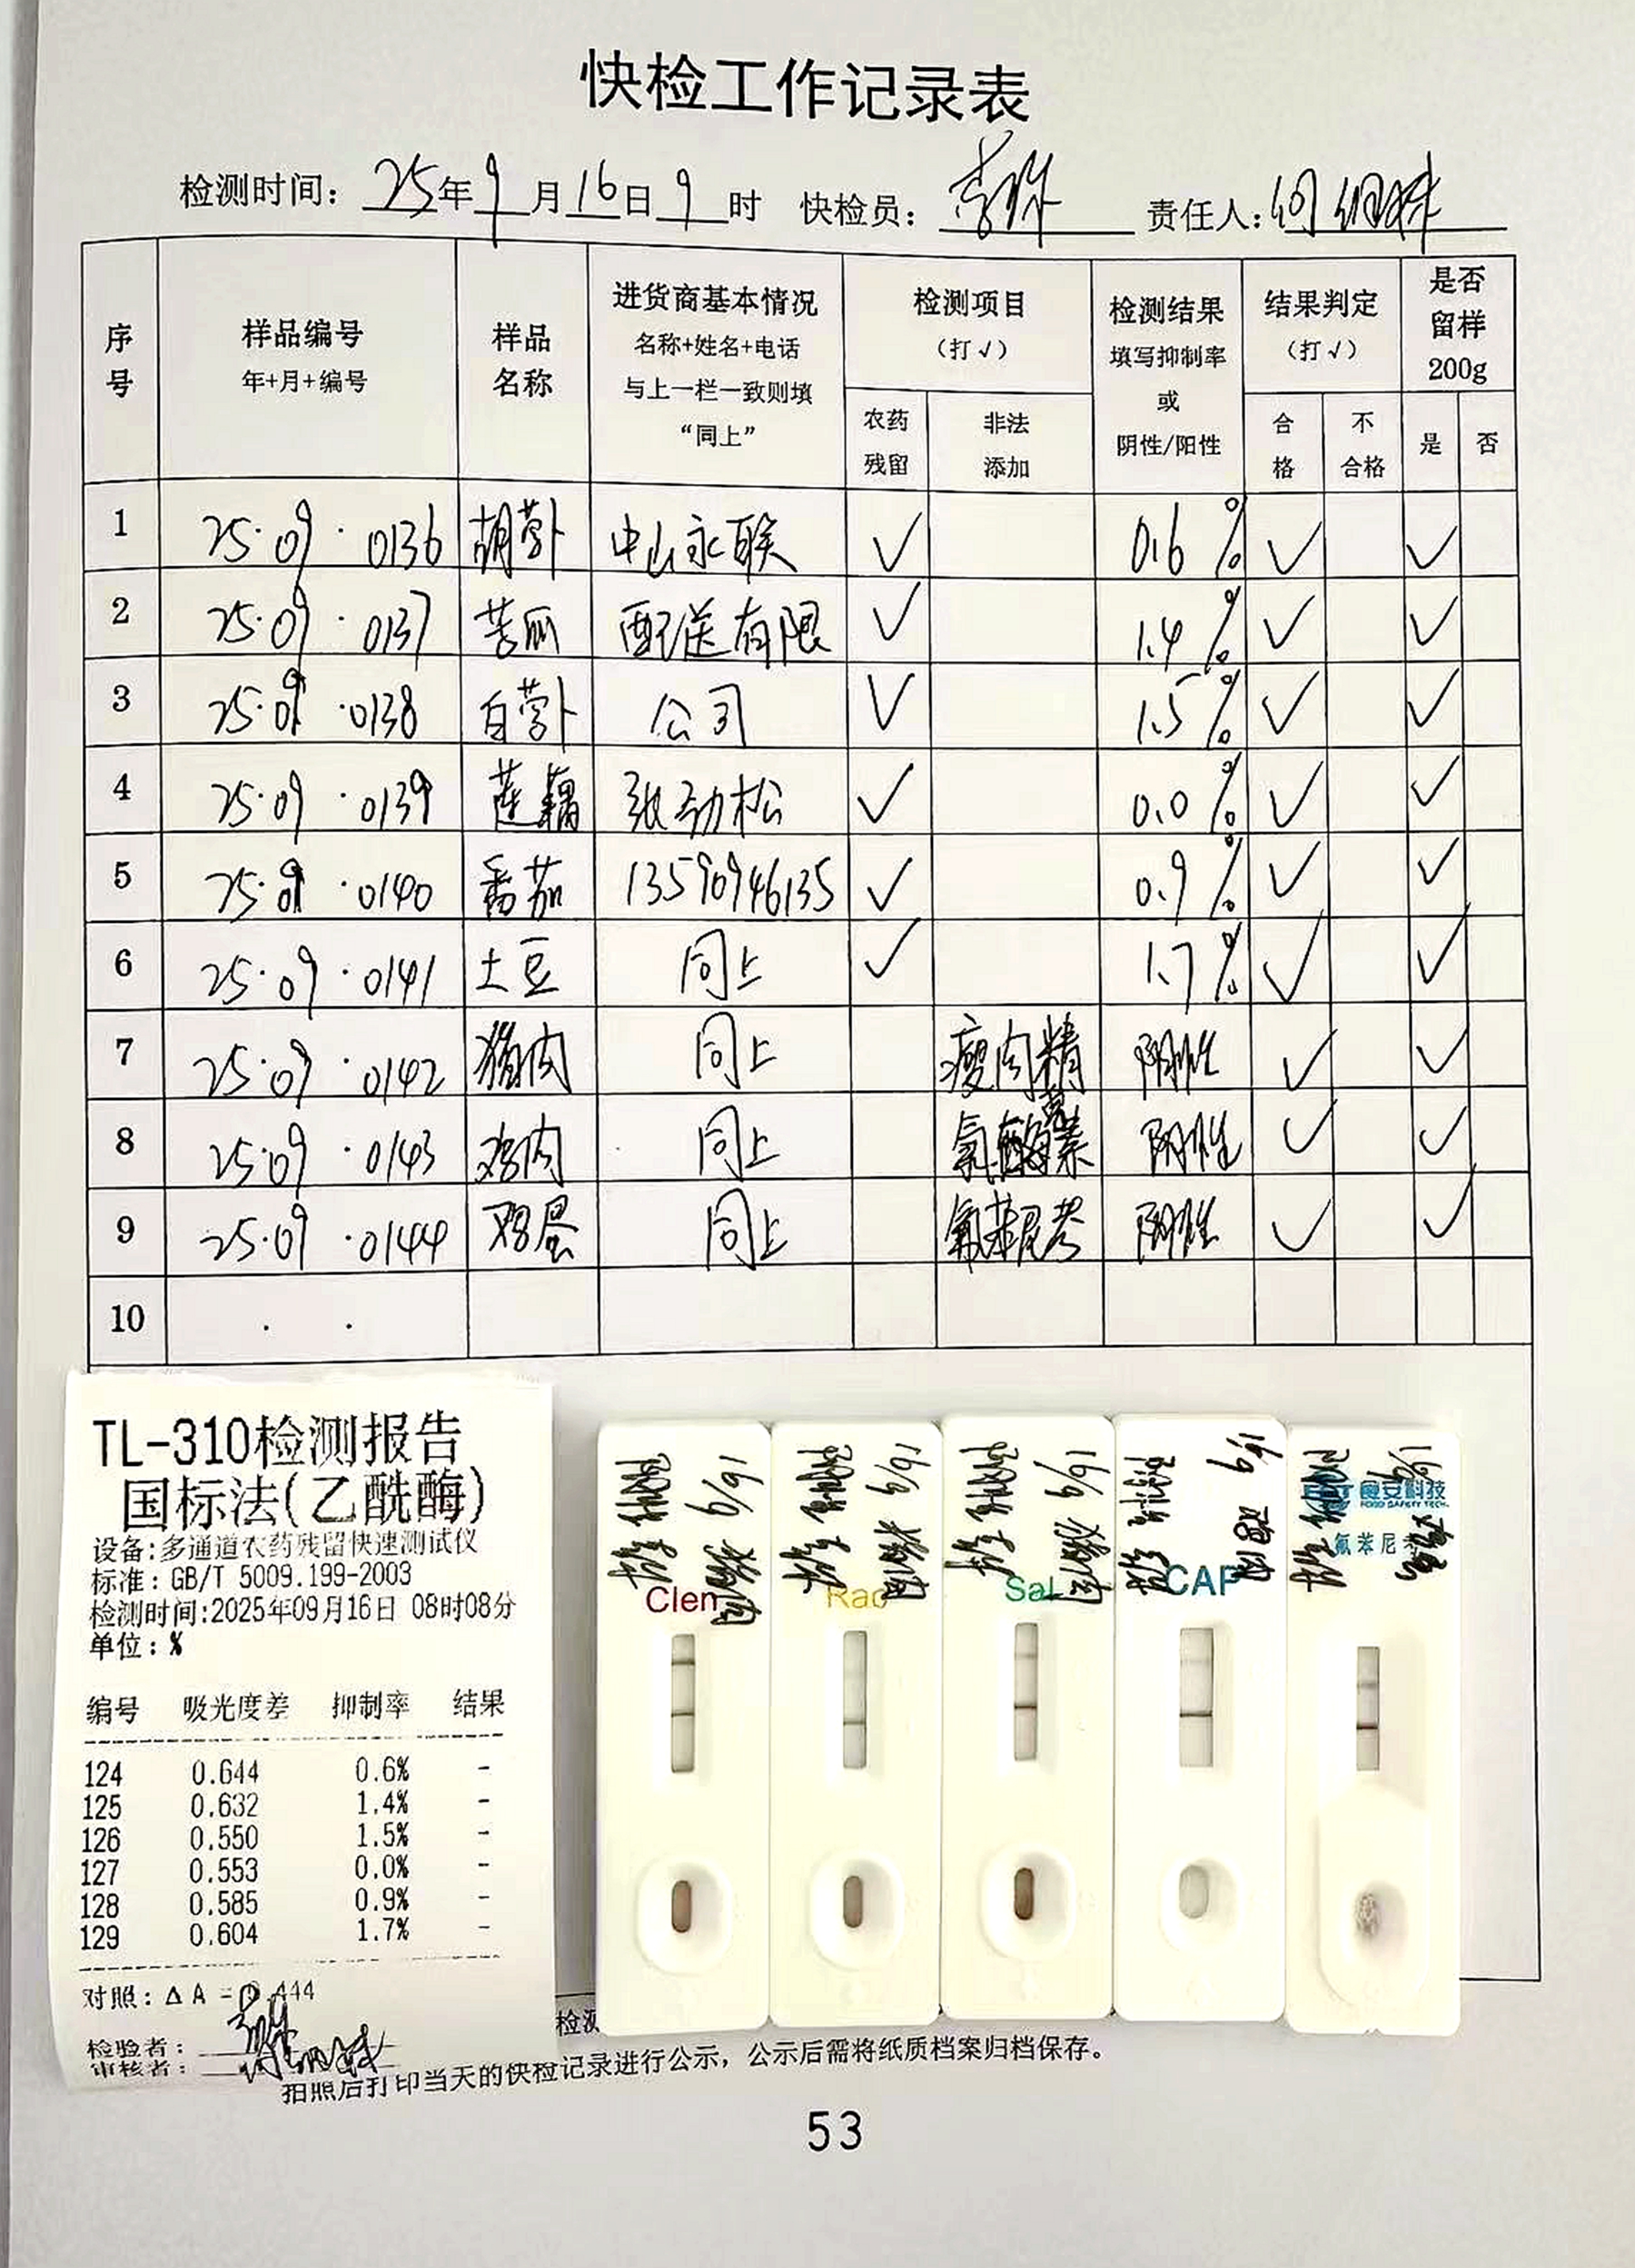 快检工作记录表
检测时间：25年9月16日9时 快检员： 责任人：
序号 样品编号 年+月+编号 样品名称 进货商基本情况 名称+姓名+电话 与上一栏一致则填“同上” 检测项目（打√） 检测结果 填写抑制率或阴性/阳性 结果判定（打√） 是否留样200g
农药残留 非法添加 合格 不合格 是 否
1 25.09.0136 胡萝卜 中山永联 √ 0.6% √ √
2 25.09.0137 苦瓜 配送有限 √ 1.4% √ √
3 25.09.0138 白萝卜 公司 √ 1.5% √ √
4 25.09.0139 莲藕 张劲松 √ 0.0% √ √
5 25.09.0140 番茄 13590946135 √ 0.9% √ √
6 25.09.0141 土豆 同上 √ 1.7% √ √
7 25.09.0142 猪肉 同上 瘦肉精 阴性 √ √
8 25.09.0143 鸡肉 同上 氯霉素 阴性 √ √
9 25.09.0144 鸡蛋 同上 氟苯尼考 阴性 √ √
10 . .
TL-310检测报告
国标法(乙酰酶)
设备:多通道农药残留快速测试仪
标准: GB/T 5009.199-2003
检测时间:2025年09月16日 08时08分
单位: %
编号 吸光度差 抑制率 结果
124 0.644 0.6% -
125 0.632 1.4% -
126 0.550 1.5% -
127 0.553 0.0% -
128 0.585 0.9% -
129 0.604 1.7% -
对照: ΔA = .444
检验者:
审核者:
16/9 猪肉 阴性
Clen
16/9 猪肉 阴性
Rac
16/9 猪肉 阴性
Sal
16/9 鸡肉 阴性
CAP
16/9 鸡蛋 阴性
食安科技
FOOD SAFETY TECH.
氟苯尼考
检测
拍照后打印当天的快检记录进行公示，公示后需将纸质档案归档保存。
53